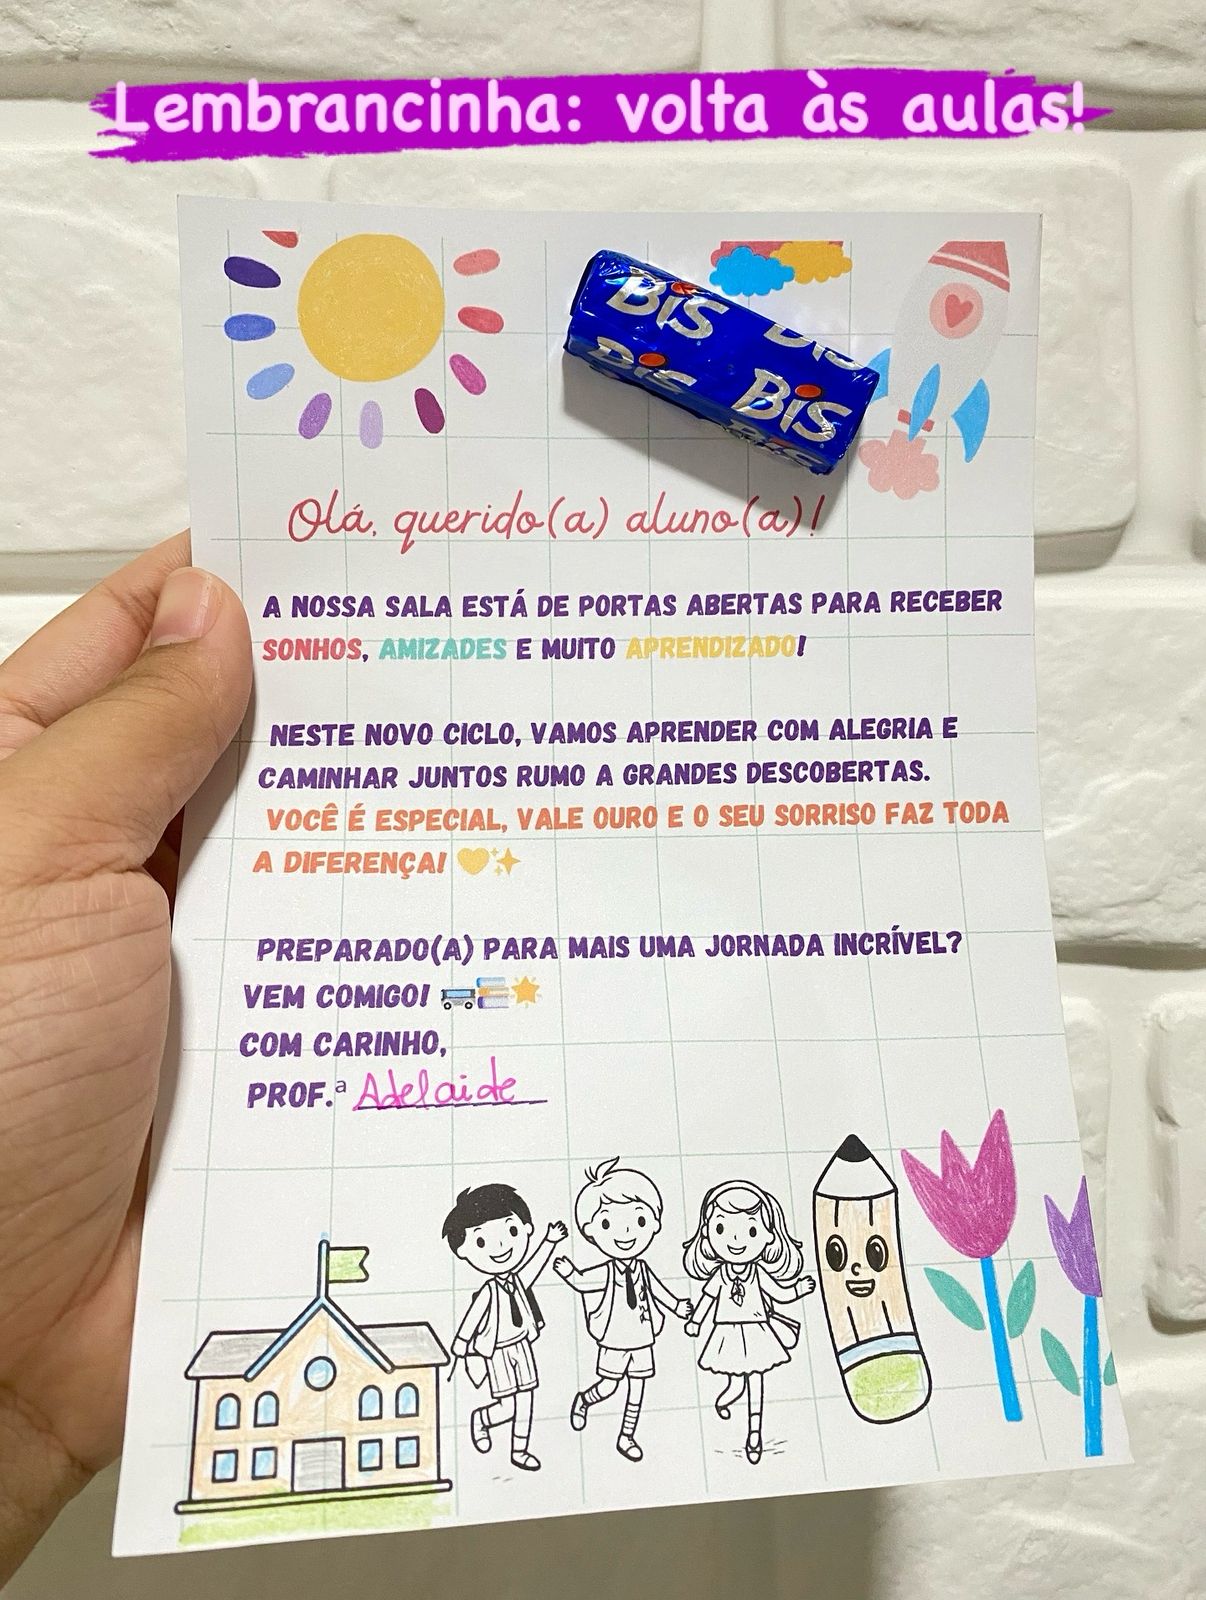 Lembrancinha: volta às aulas!
BiS
BiS
Bis
BiS
Bis
Olá, querido(a) aluno(a)!
A NOSSA SALA ESTÁ DE PORTAS ABERTAS PARA RECEBER
SONHOS, AMIZADES E MUITO APRENDIZADO!
NESTE NOVO CICLO, VAMOS APRENDER COM ALEGRIA E
CAMINHAR JUNTOS RUMO A GRANDES DESCOBERTAS.
VOCÊ É ESPECIAL, VALE OURO E O SEU SORRISO FAZ TODA
A DIFERENÇA! 💛✨
PREPARADO(A) PARA MAIS UMA JORNADA INCRÍVEL?
VEM COMIGO!
COM CARINHO,
PROF.ª Adelaide